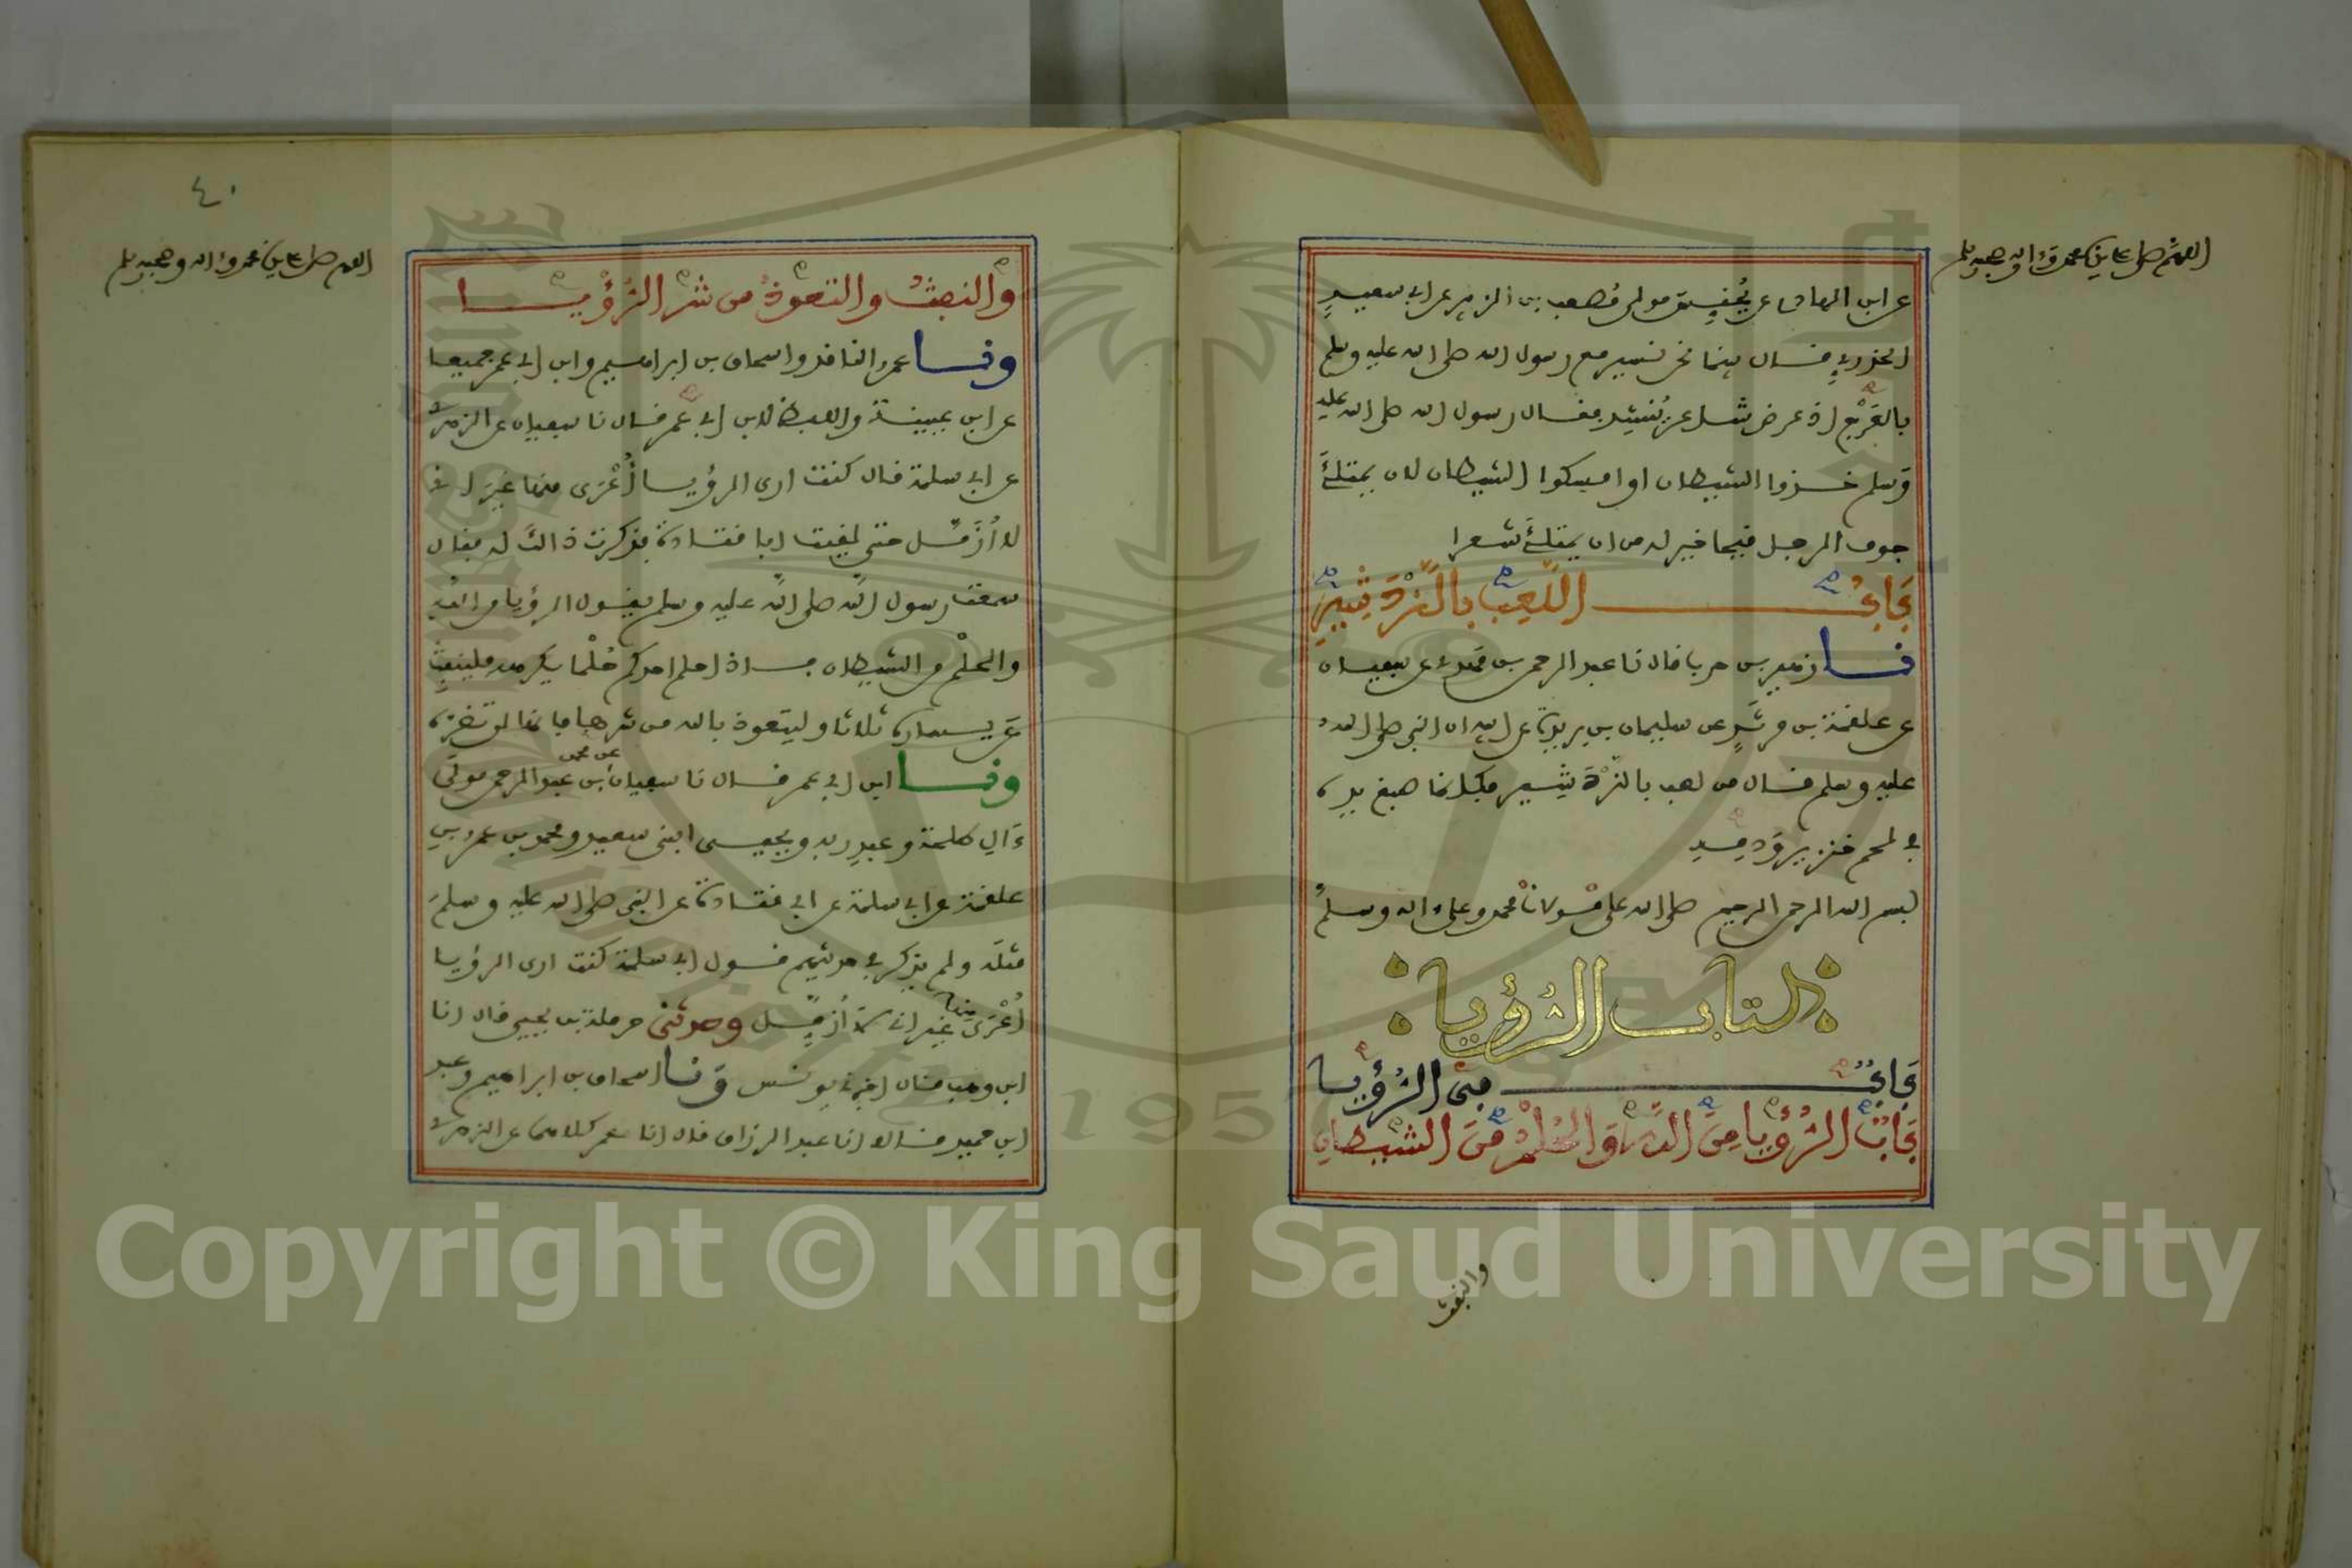 اللهم صل على سيدنا محمد وءاله وصحبه وسلم
عن ابن الهاد عن يُحَنِّس مولى مُصعب بن الزبير عن ابي سعيد
الخدري قال بينما نحن نسير مع رسول الله صلى الله عليه وسلم
بالعَرْج اذ عرض شاعر يُنشِد فقال رسول الله صلى الله عليه
وسلم خذوا الشيطان او امسكوا الشيطان لان يمتلئَ
جوف الرجل قيحا خير له من ان يمتلئَ شعرا
بَابُ اللَّعِب بالنَّرْدَشِيرِ
نا زهير بن حرب قال نا عبد الرحمن بن مهدي عن سفيان
عن علقمة بن مرثدٍ عن سليمان بن بريدة عن ابيه ان النبي صلى الله
عليه وسلم قال من لعب بالنَّرْدَشير فكانما صبغ يده
في لحم خنزير وَدمه
بسم الله الرحمن الرحيم صلى الله على مولانا محمد وعلى ءاله وسلم
كتاب الرُّؤيا
بَابٌ في الرُّؤيا
بَابُ الرُّؤيا مِنَ اللهِ وَالحُلْمُ مِنَ الشيطانِ
والنفث
٤٠
اللهم صل على سيدنا محمد وءاله وصحبه وسلم
والنفثُ والتعوذُ من شر الرُّؤيا
ونا عمرو الناقد واسحاق بن ابراهيم وابن ابي عمر جميعا
عن ابن عيينة واللفظ لابن ابي عمر قال نا سفيان عن الزهري
عن ابي سلمة قال كنت ارى الرؤيا أُعْرَى منها غيرَ اني
لا أُزَمَّل حتى لقيت ابا قتادة فذكرت ذالك له فقال
سمعت رسول الله صلى الله عليه وسلم يقول الرؤيا من الله
والحلْم من الشيطان فاذا احلم احدكم حُلْما يكرهه فلينفث
عن يساره ثلاثا وليتعوذ بالله من شرها فانها لن تضره
ونا ابن ابي عمر قال نا سفيان عن محمد بن عبد الرحمن مولى
ءَالِ طلحة وعبدِ ربه ويحيى ابني سعيد ومحمد بن عمرو بن
علقمة عن ابي سلمة عن ابي قتادة عن النبي صلى الله عليه وسلم
مثلَه ولم يذكر في حديثهم قول ابي سلمة كنت ارى الرؤيا
أُعْرَى منها غير اني لا أُزمَّل وحدثني حرملة بن يحيى قال انا
ابن وهب قال اخبرني يونس وَنا اسحاق بن ابراهيم وعبد
ابن حميد قالا انا عبد الرزاق قال انا معمر كلاهما عن الزهري
Copyright © King Saud University
1957